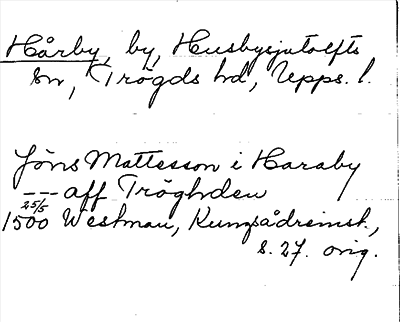 Hårby, by, Husbysjutolfts
sn, Trögds hd, Upps. l.
Jöns Mattesson i Haraby
--- aff Tröghden
25/5
1500 Westman, Kungsådreinst.,
s. 27. orig.